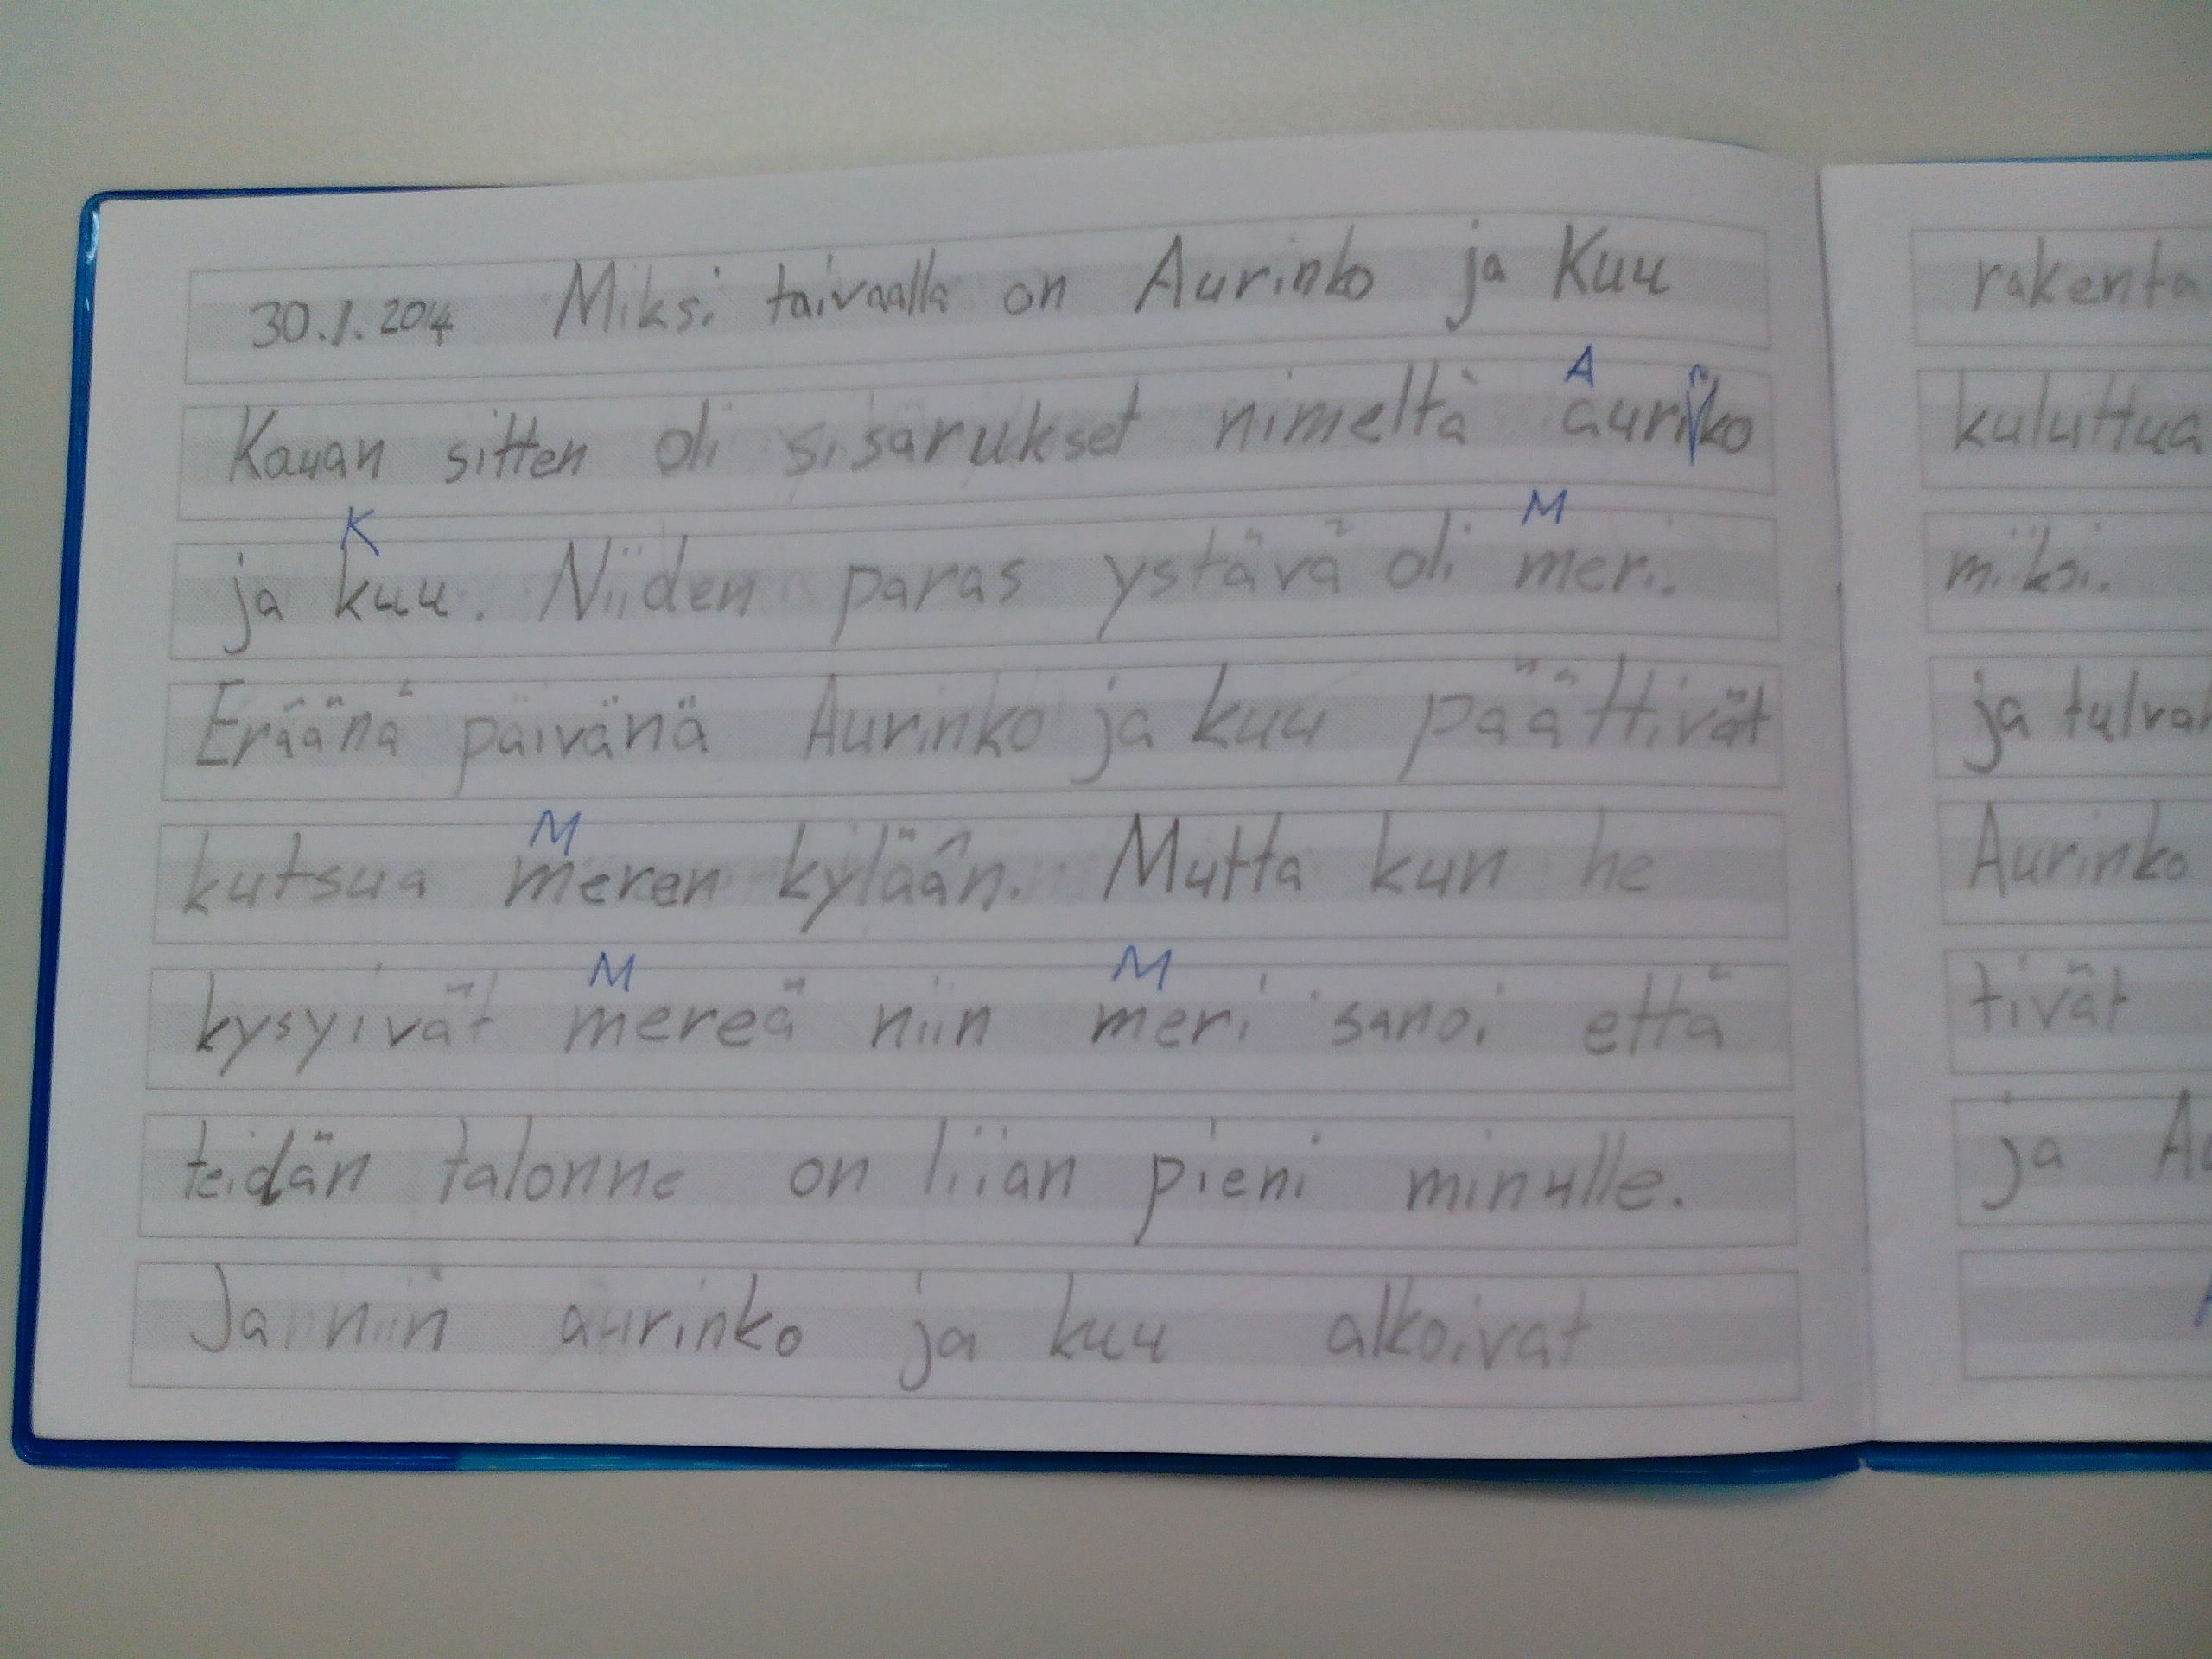 30.1.2014 Miksi taivaalla on Aurinko ja Kuu
A n
Kauan sitten oli sisarukset nimeltä auriko
K M
ja kuu. Niiden paras ystävä oli meri.
Eräänä päivänä Aurinko ja kuu päättivät
M
kutsua meren kylään. Mutta kun he
M M
kysyivät mereä niin meri sanoi että
teidän talonne on liian pieni minulle.
Ja niin aurinko ja kuu alkoivat
rakenta
kuluttua
miksi.
ja tulva
Aurinko
tivät
ja Au